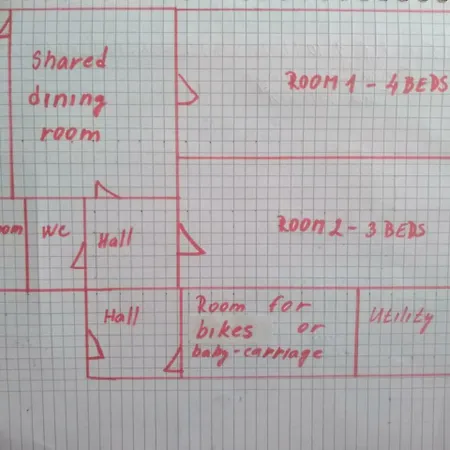 Shared
dining
room
ROOM 1 - 4 BEDS
om
WC
Hall
ROOM 2 - 3 BEDS
Hall
Room for
bikes or
baby-carriage
Utility